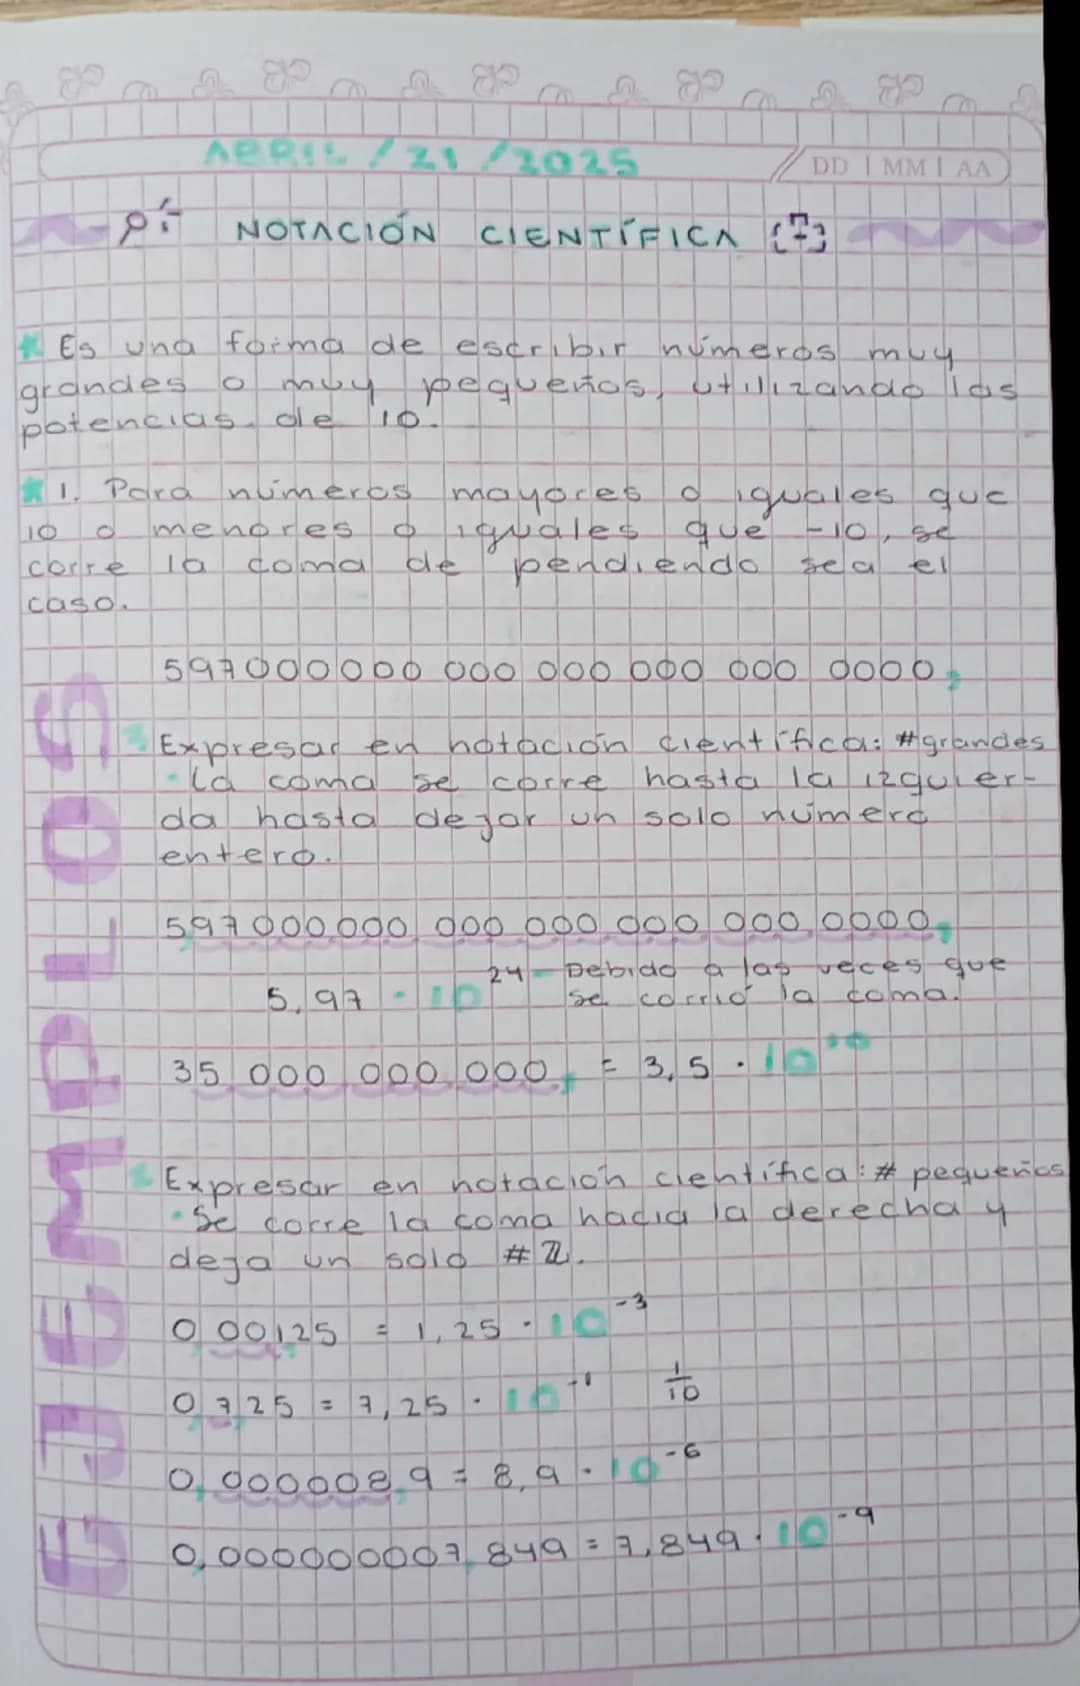 ABRIL / 21 / 2025
DD | MM | AA
NOTACIÓN CIENTÍFICA
* Es una forma de escribir números muy
grandes o muy pequeños, utilizando las
potencias de 10.
* 1. Para números mayores o iguales que
10 o menores o iguales que -10, se
corre la coma de pendiendo sea el
caso.
597000000 000 000 000 000 0000,
Expresar en notación científica: #grandes
· La coma se corre hasta la izquier-
da hasta dejar un solo número
entero.
597000000 000 000 000 000 0000,
5,97 · 10²⁴ - Debido a las veces que
se corrió la coma.
35 000 000 000, = 3,5 · 10¹⁰
Expresar en notación científica: # pequeños
· Se corre la coma hacia la derecha y
deja un solo # ℤ.
0,00125 = 1,25 · 10⁻³
0,725 = 7,25 · 10⁻¹ 1/10
0,0000089 = 8,9 · 10⁻⁶
0,000000007849 = 7,849 · 10⁻⁹